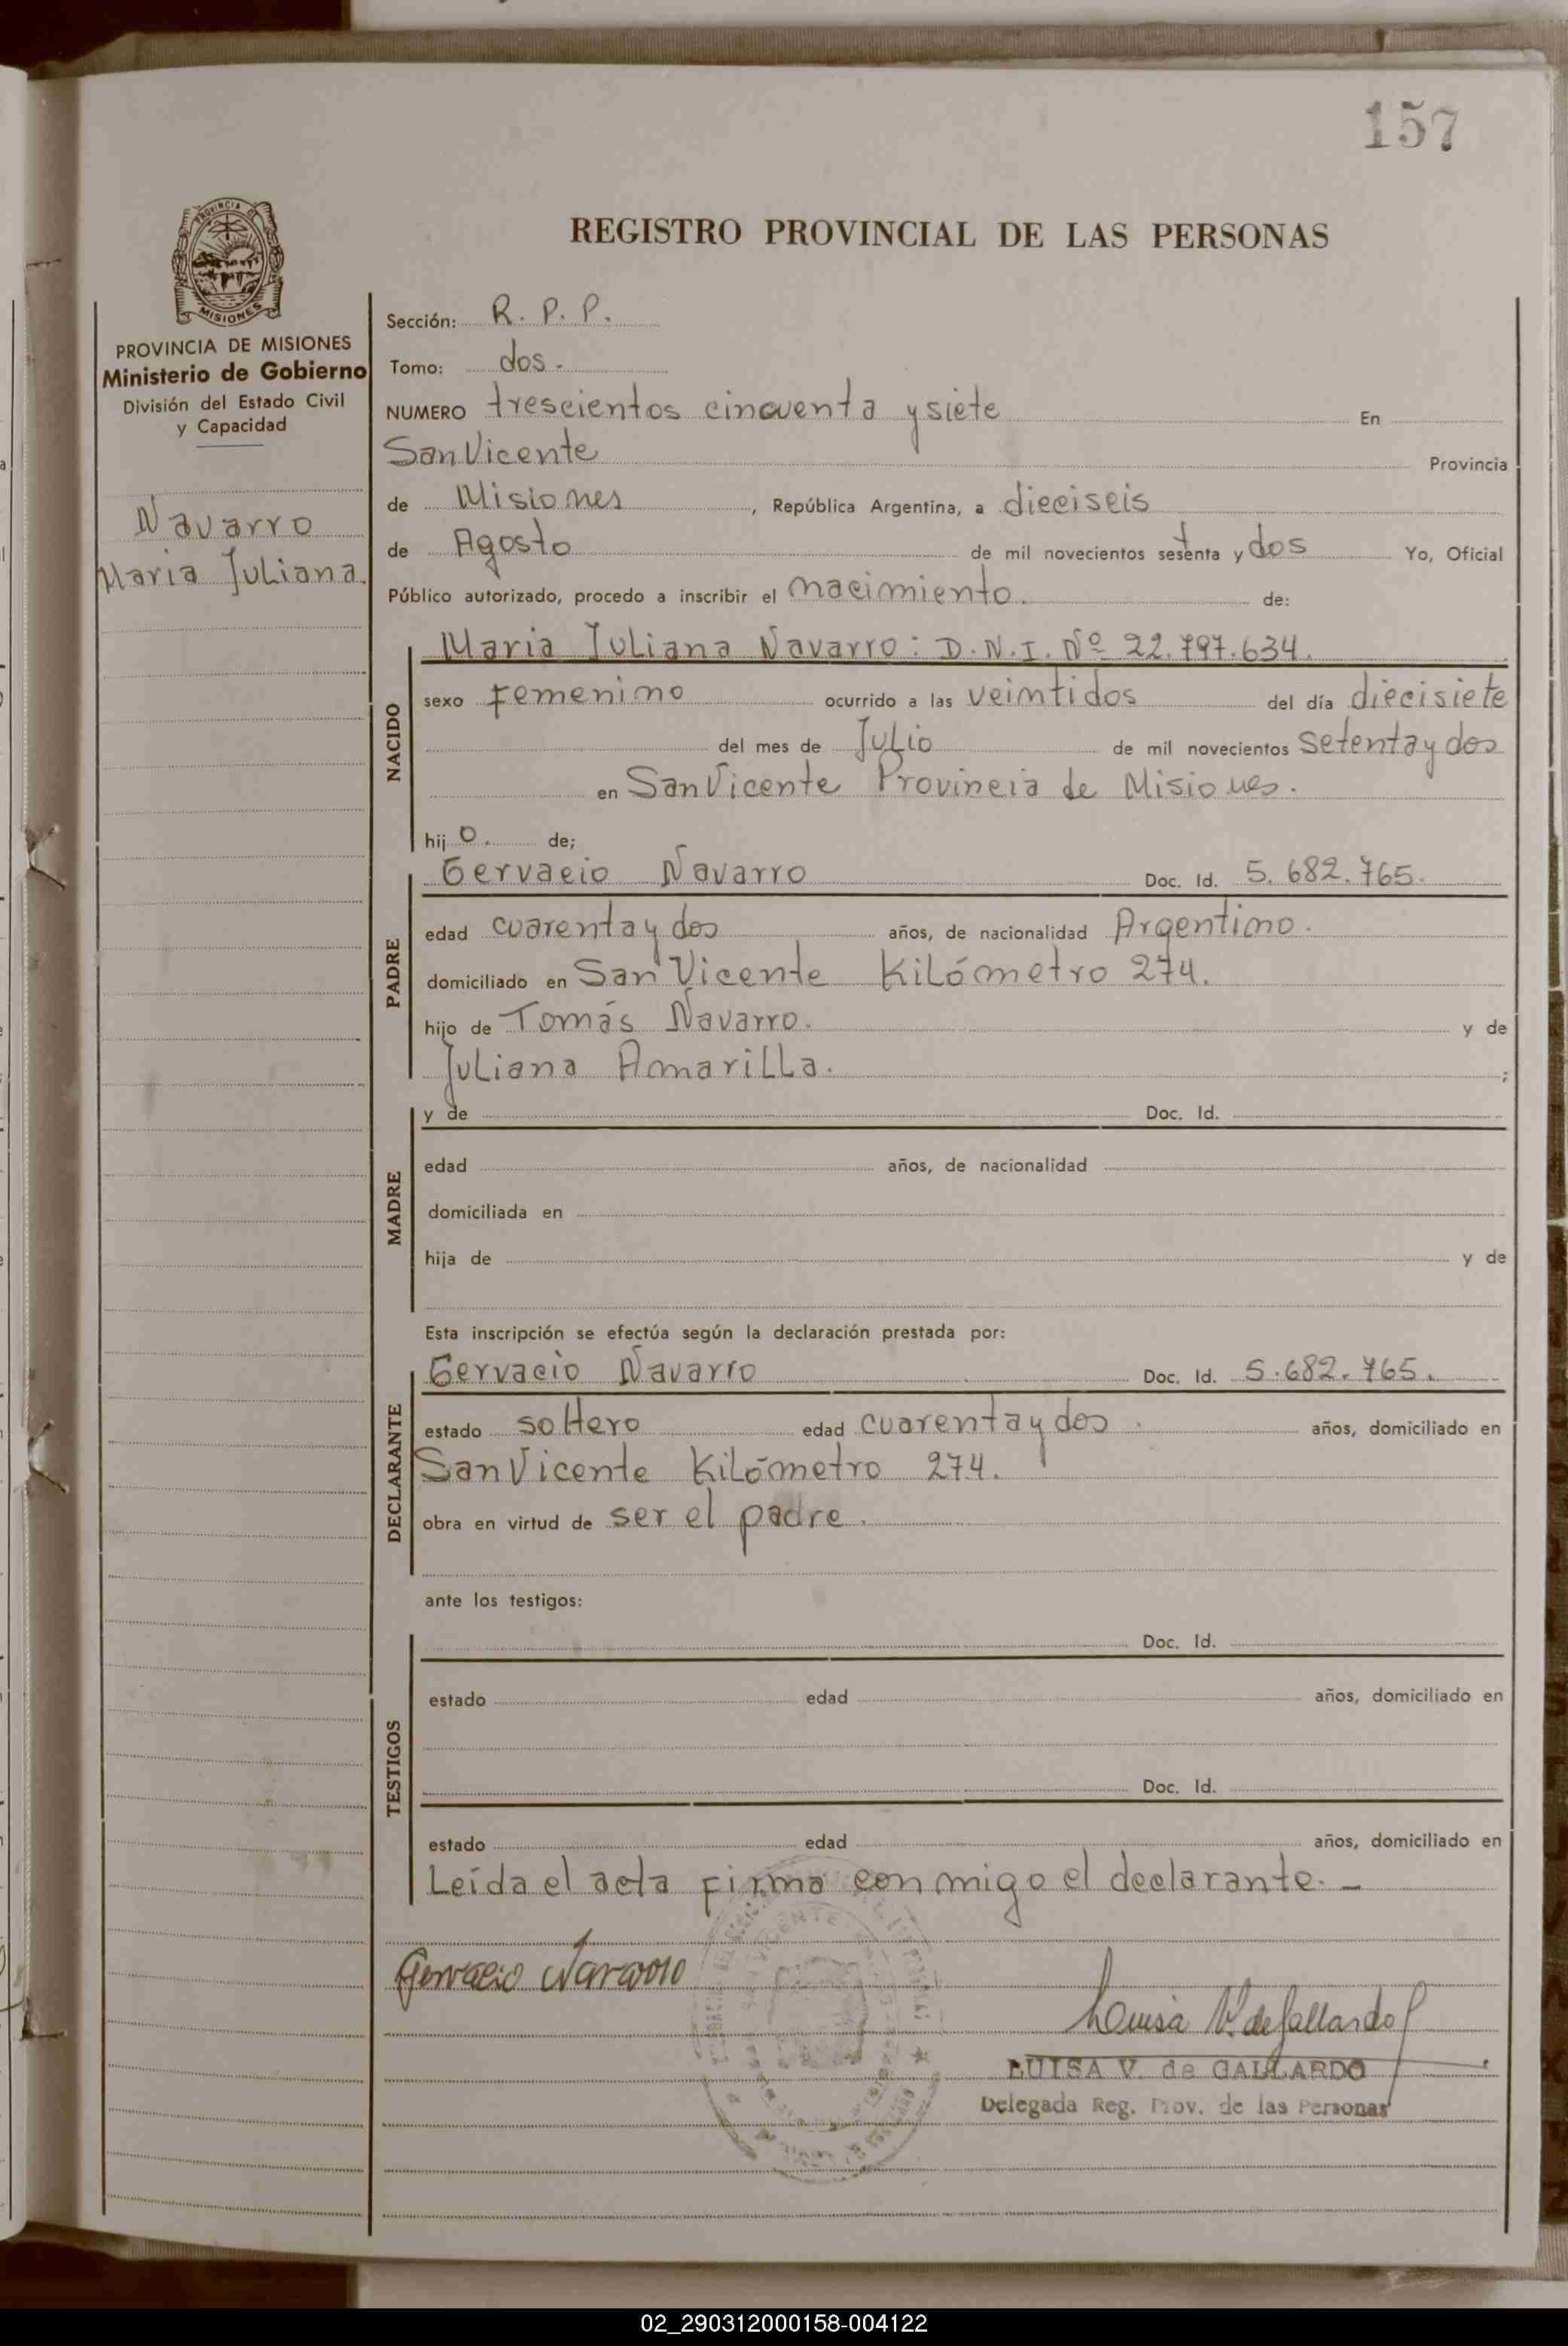 157
REGISTRO PROVINCIAL DE LAS PERSONAS
PROVINCIA DE
MISIONES
PROVINCIA DE MISIONES
Ministerio de Gobierno
División del Estado Civil
y Capacidad
Navarro
Maria Juliana.
Sección: R. P. P.
Tomo: dos.
NUMERO trescientos cincuenta y siete En
San Vicente Provincia
de Misiones, República Argentina, a dieciseis
de Agosto de mil novecientos setenta y dos Yo, Oficial
Público autorizado, procedo a inscribir el nacimiento. de:
NACIDO
Maria Juliana Navarro: D.N.I. Nº 22.797.634.
sexo femenino ocurrido a las veintidos del día diecisiete
del mes de Julio de mil novecientos setenta y dos
en San Vicente Provincia de Misiones.
hijo. de;
PADRE
Gervacio Navarro Doc. Id. 5.682.765.
edad cuarenta y dos años, de nacionalidad Argentino.
domiciliado en San Vicente Kilómetro 274.
hijo de Tomás Navarro. y de
Juliana Amarilla. ;
MADRE
y de Doc. Id.
edad años, de nacionalidad
domiciliada en
hija de y de
Esta inscripción se efectúa según la declaración prestada por:
DECLARANTE
Gervacio Navarro Doc. Id. 5.682.765.
estado soltero edad cuarenta y dos. años, domiciliado en
San Vicente Kilómetro 274.
obra en virtud de ser el padre.
ante los testigos:
TESTIGOS
Doc. Id.
estado edad años, domiciliado en
Doc. Id.
estado edad años, domiciliado en
Leída el acta firma conmigo el declarante. —
Gervacio Navarro
Luisa V. de Gallardo
LUISA V. de GALLARDO
Delegada Reg. Prov. de las Personas
02_290312000158-004122